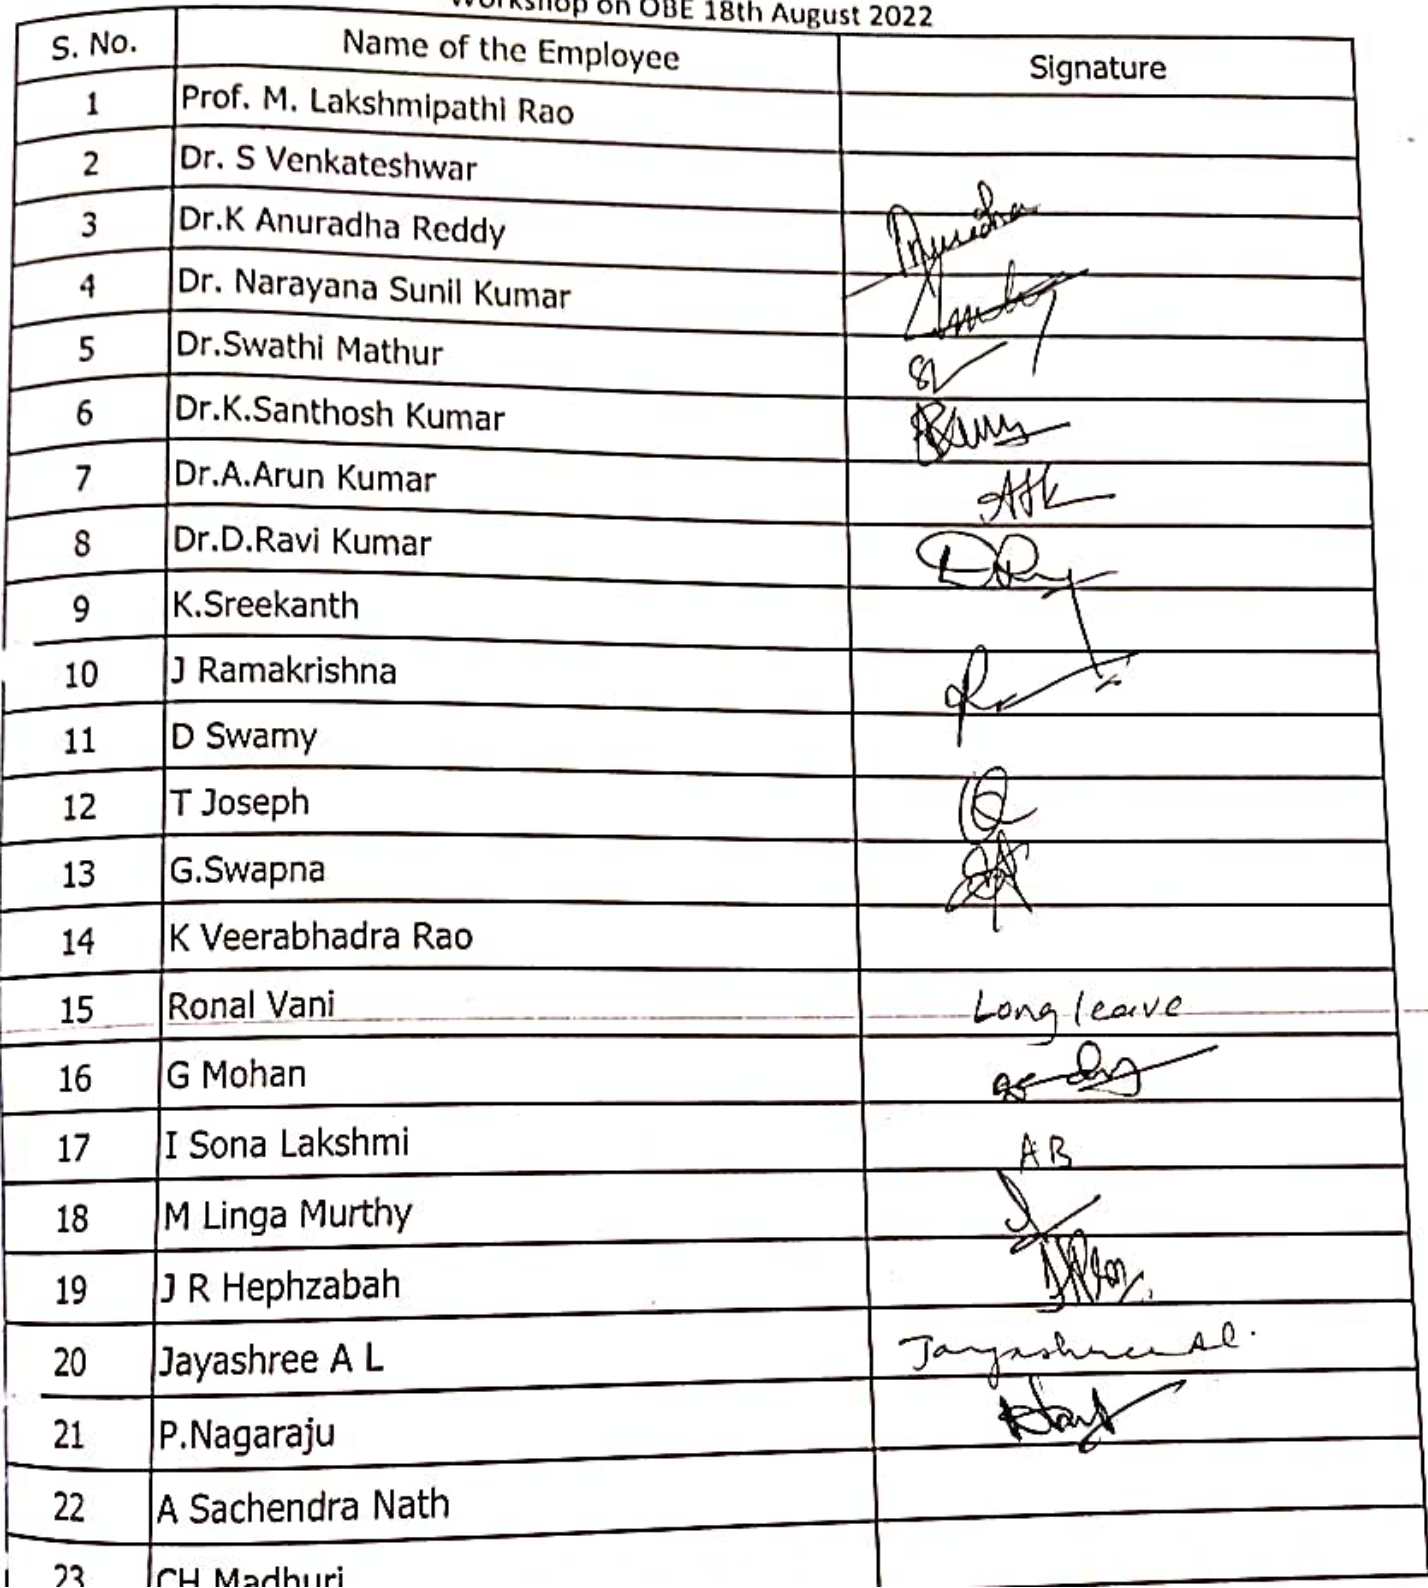 Workshop on OBE 18th August 2022
S. No. Name of the Employee Signature
1 Prof. M. Lakshmipathi Rao
2 Dr. S Venkateshwar
3 Dr.K Anuradha Reddy
4 Dr. Narayana Sunil Kumar
5 Dr.Swathi Mathur
6 Dr.K.Santhosh Kumar
7 Dr.A.Arun Kumar
8 Dr.D.Ravi Kumar
9 K.Sreekanth
10 J Ramakrishna
11 D Swamy
12 T Joseph
13 G.Swapna
14 K Veerabhadra Rao
15 Ronal Vani Long leave
16 G Mohan
17 I Sona Lakshmi AB
18 M Linga Murthy
19 J R Hephzabah
20 Jayashree A L Jayashree A L.
21 P.Nagaraju
22 A Sachendra Nath
23 CH Madhuri